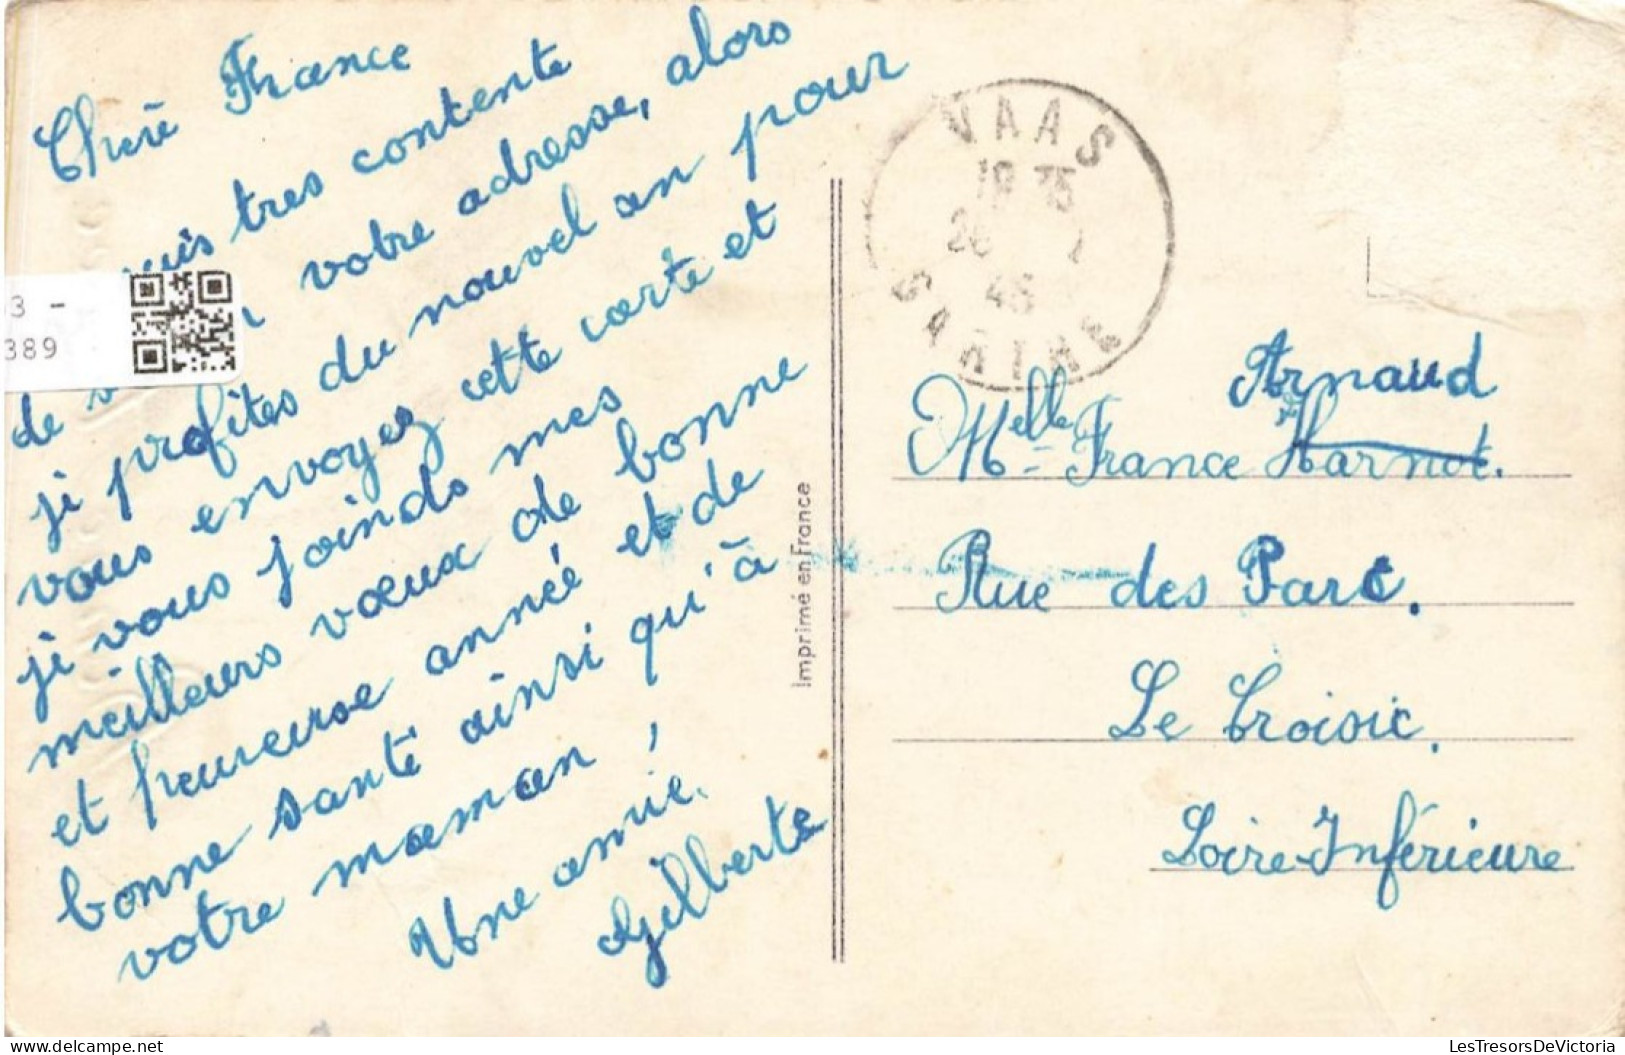 Cheré France
suis tres contente
de votre adresse, alors
je profites du nouvel an pour
vous envoyez cette carte et
je vous joinds mes
meilleurs vœux de bonne
et heureuse année et de
bonne santé ainsi qu'à
votre maman,
Une amie.
Gilberte
3 -
389
Imprimé en France
VAAS
18 35
26 1
45
SARTHE
Arnaud
Melle France Harnot.
Rue des Parc.
Le Croisic.
Loire-Inférieure
LesTresorsDeVictoria